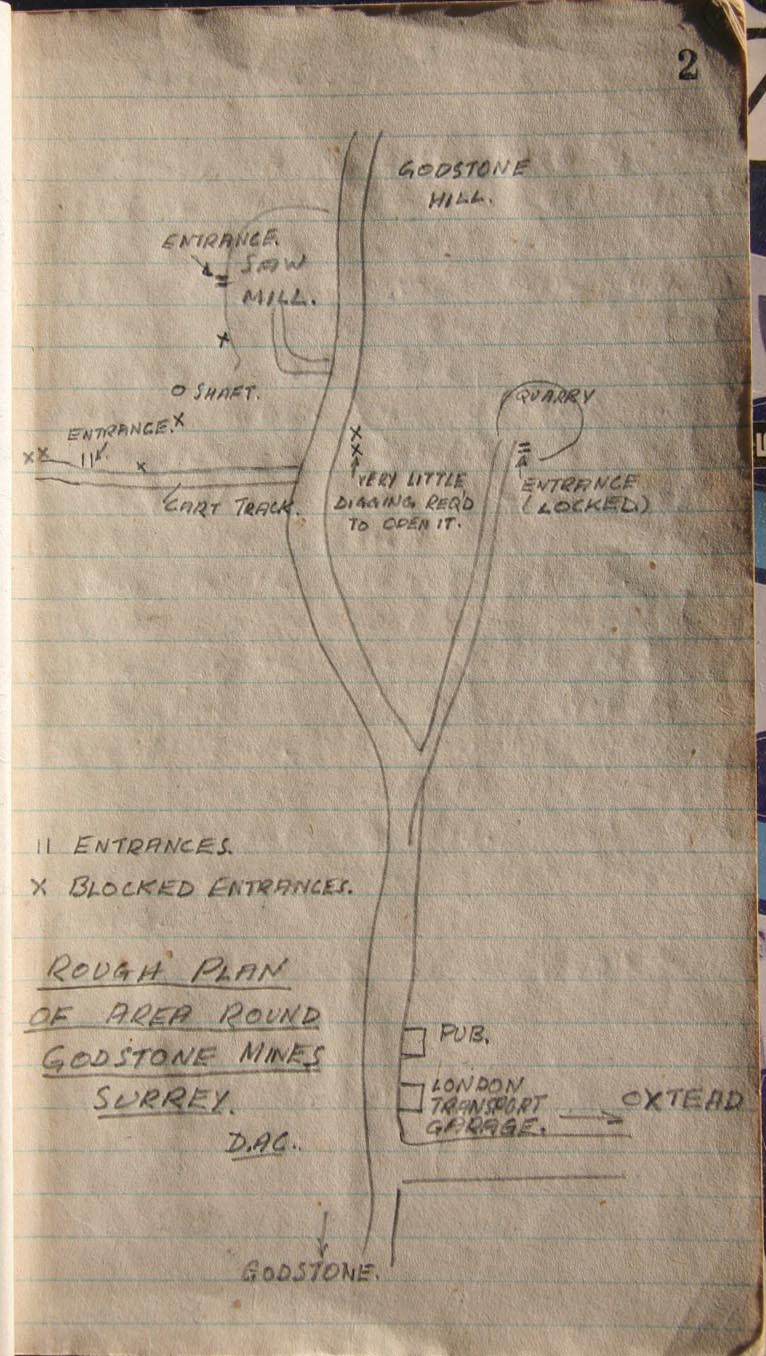 2
GODSTONE
HILL.
ENTRANCE.
SAW
MILL.
X
O SHAFT.
X
ENTRANCE.
XX
X
CART TRACK.
X
X
VERY LITTLE
DIGGING REQD
TO OPEN IT.
QUARRY
ENTRANCE
(LOCKED)
II ENTRANCES.
X BLOCKED ENTRANCES.
ROUGH PLAN
OF AREA ROUND
GODSTONE MINES
SURREY.
D.A.C.
PUB.
LONDON
TRANSPORT
GARAGE.
OXTEAD
GODSTONE.